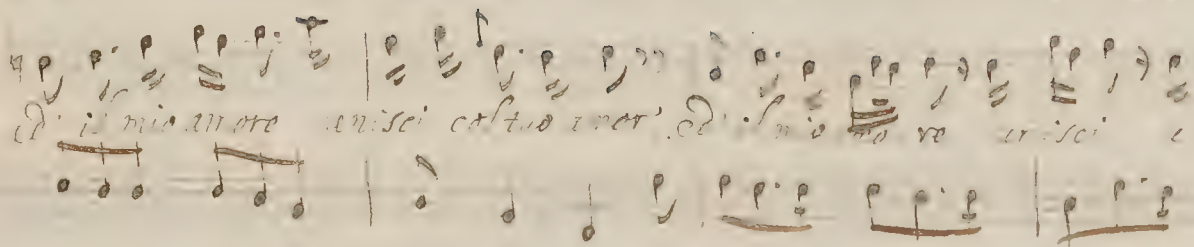 Ed' il mio amore unisci col tuo amor' Ed' il mio amore unisci c